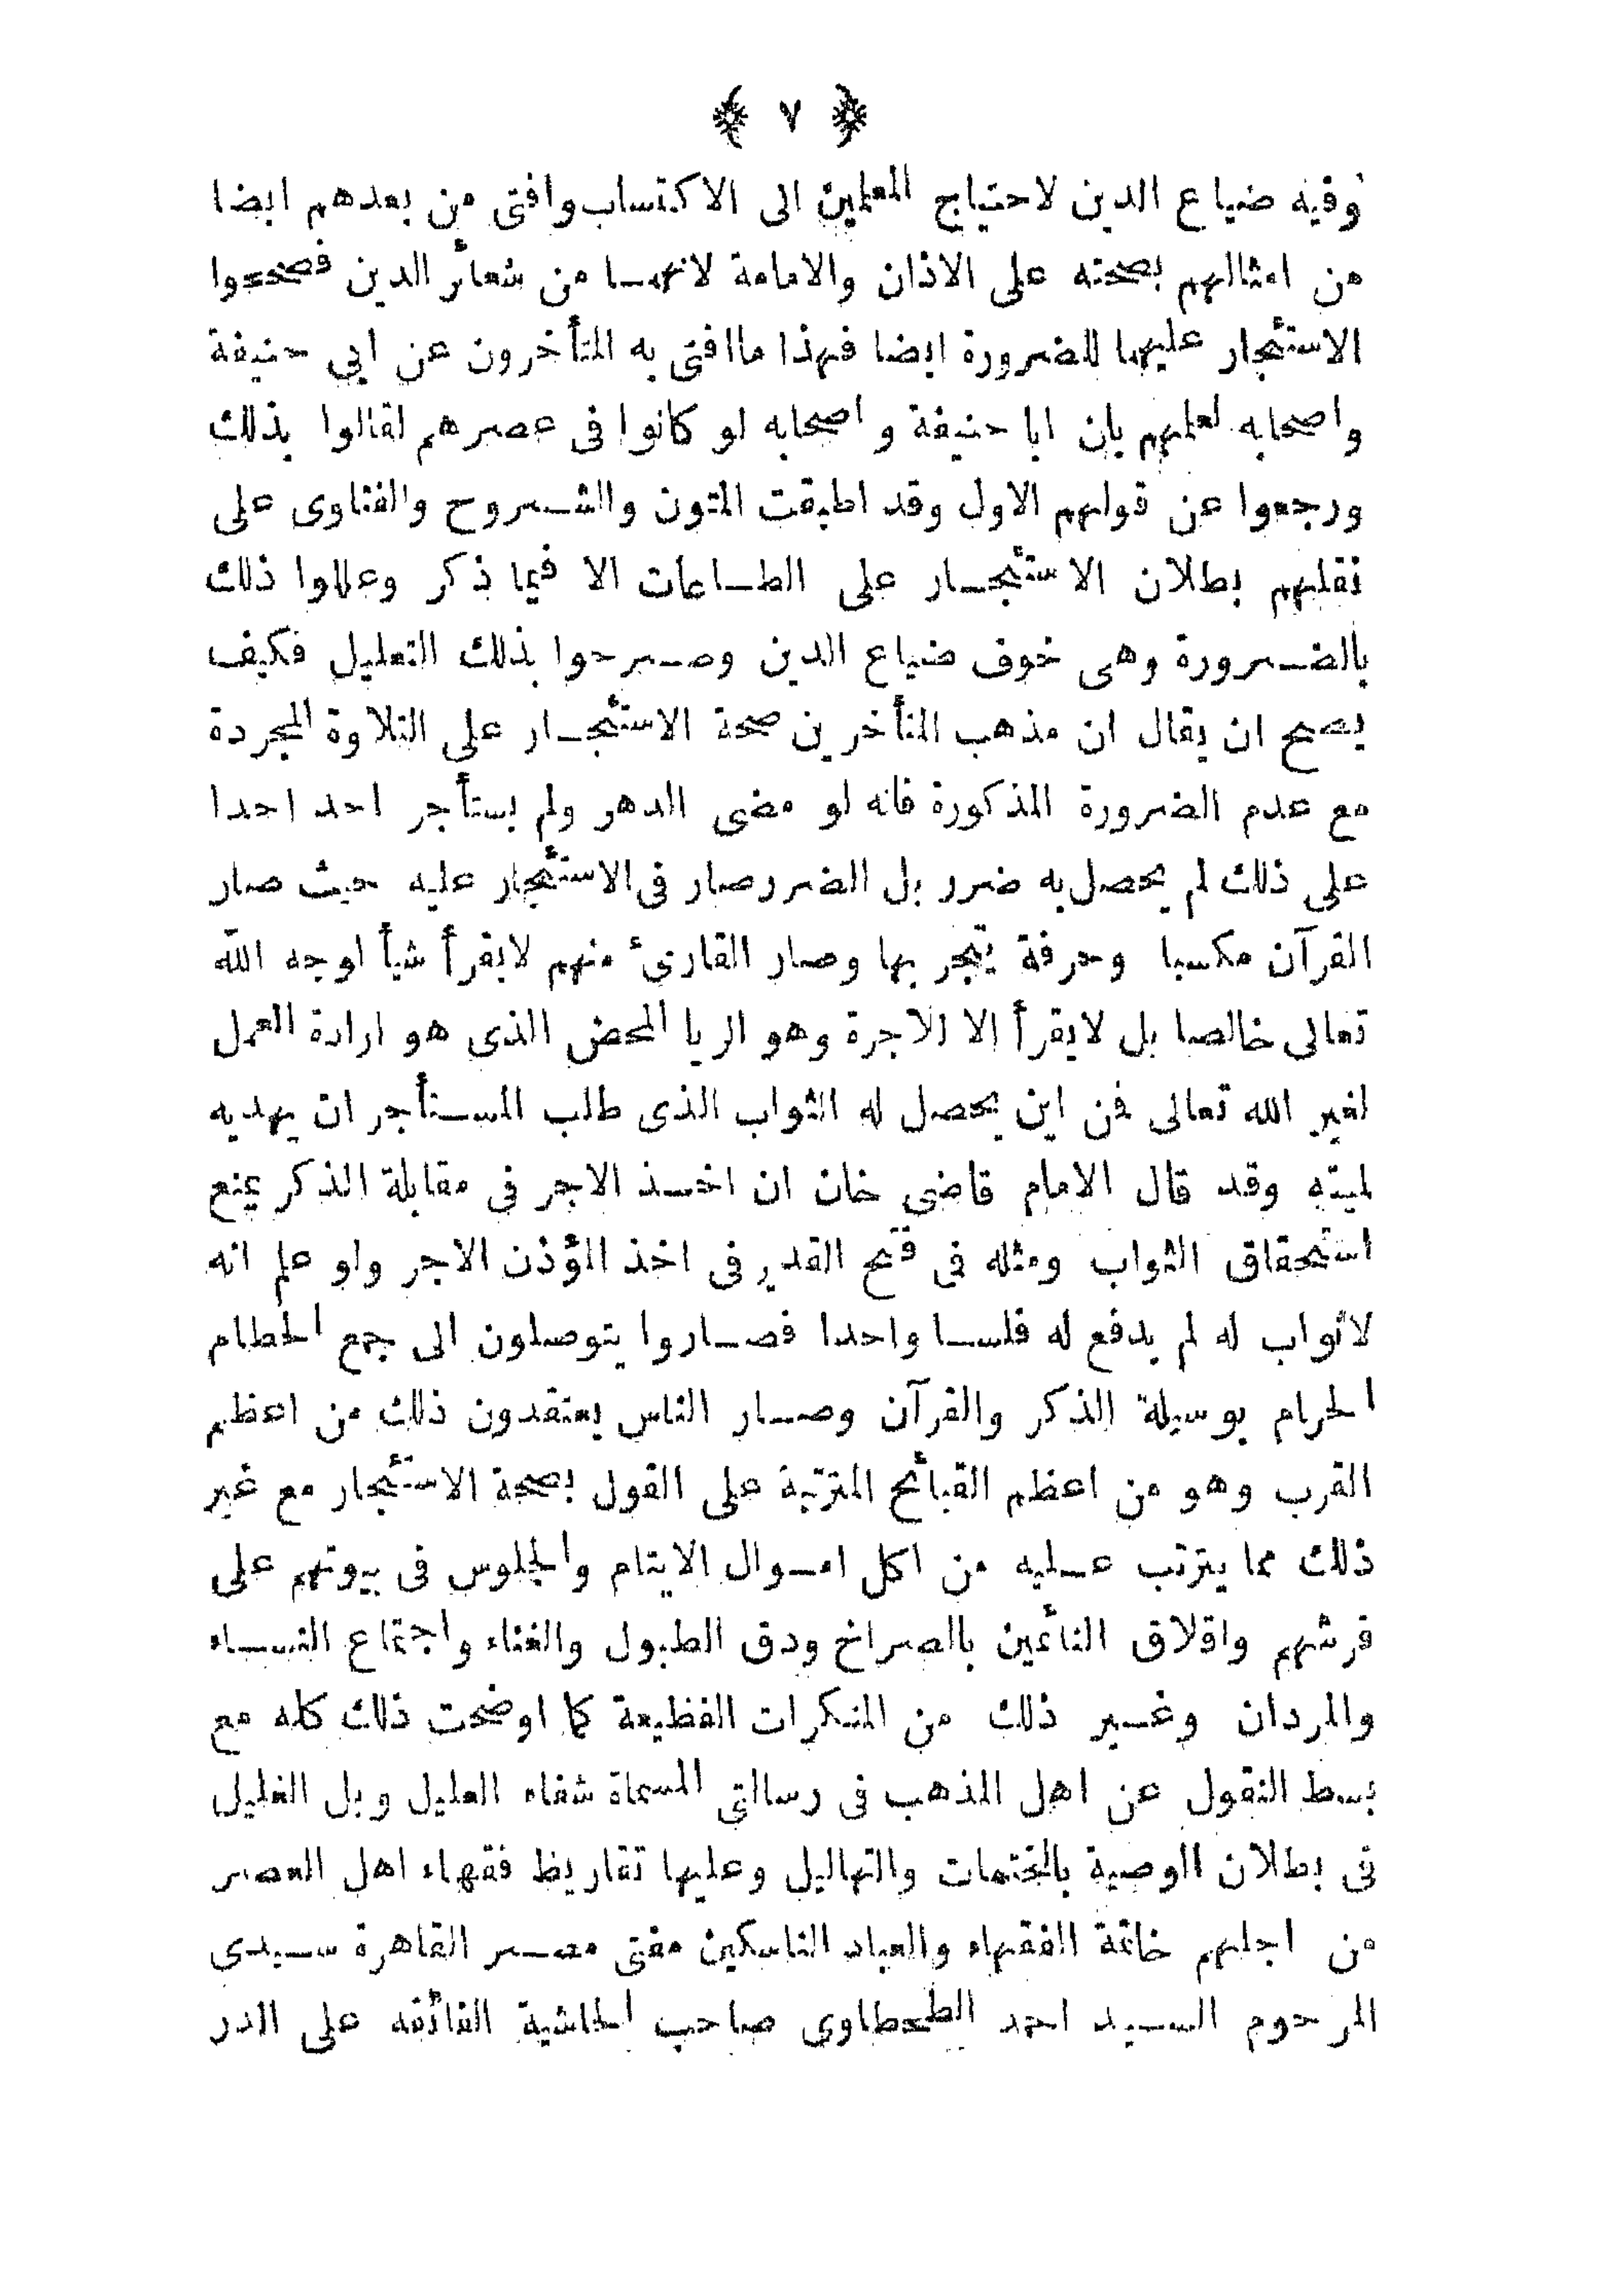 ﴿ ٧ ﴾
وفيه ضياع الدين لاحتياج المعلمين الى الاكتساب وافتى من بعدهم ايضا
من امثالهم بصحته على الاذان والامامة لانهما من شعائر الدين فصححوا
الاستئجار عليهما للضرورة ايضا فهذا ماافتى به المتأخرون عن ابي حنيفة
واصحابه لعلمهم بان ابا حنيفة واصحابه لو كانوا فى عصرهم لقالوا بذلك
ورجعوا عن قولهم الاول وقد اطبقت المتون والشروح والفتاوى على
نقلهم بطلان الاستئجار على الطاعات الا فيما ذكر وعللوا ذلك
بالضرورة وهى خوف ضياع الدين وصرحوا بذلك التعليل فكيف
يصح ان يقال ان مذهب المتأخرين صحة الاستئجار على التلاوة المجردة
مع عدم الضرورة المذكورة فانه لو مضى الدهر ولم يستأجر احد احدا
على ذلك لم يحصل به ضرر بل الضرر صار فى الاستئجار عليه حيث صار
القرآن مكسبا وحرفة يتجر بها وصار القارئ منهم لايقرأ شيأ لوجه الله
تعالى خالصا بل لايقرأ الا للاجرة وهو الريا المحض الذى هو ارادة العمل
لغير الله تعالى فمن اين يحصل له الثواب الذى طلب المستأجر ان يهديه
لميته وقد قال الامام قاضى خان ان اخذ الاجر فى مقابلة الذكر يمنع
استحقاق الثواب ومثله فى فتح القدير فى اخذ المؤذن الاجر ولو علم انه
لاثواب له لم يدفع له فلسا واحدا فصاروا يتوصلون الى جمع الحطام
الحرام بوسيلة الذكر والقرآن وصار الناس يعتقدون ذلك من اعظم
القرب وهو من اعظم القبائح المترتبة على القول بصحة الاستئجار مع غير
ذلك مما يترتب عليه من اكل اموال الايتام والجلوس فى بيوتهم على
فرشهم واقلاق النائمين بالصراخ ودق الطبول والغناء واجتماع النساء
والمردان وغير ذلك من المنكرات الفظيعة كما اوضحت ذلك كله مع
بسط النقول عن اهل المذهب فى رسالتى المسماة شفاء العليل وبل الغليل
فى بطلان الوصية بالختمات والتهاليل وعليها تقاريظ فقهاء اهل العصر
من اجلهم خاتمة الفقهاء والعباد الناسكين مفتى مصر القاهرة سيدى
المرحوم السيد احمد الطحطاوى صاحب الحاشية الفائقه على الدر